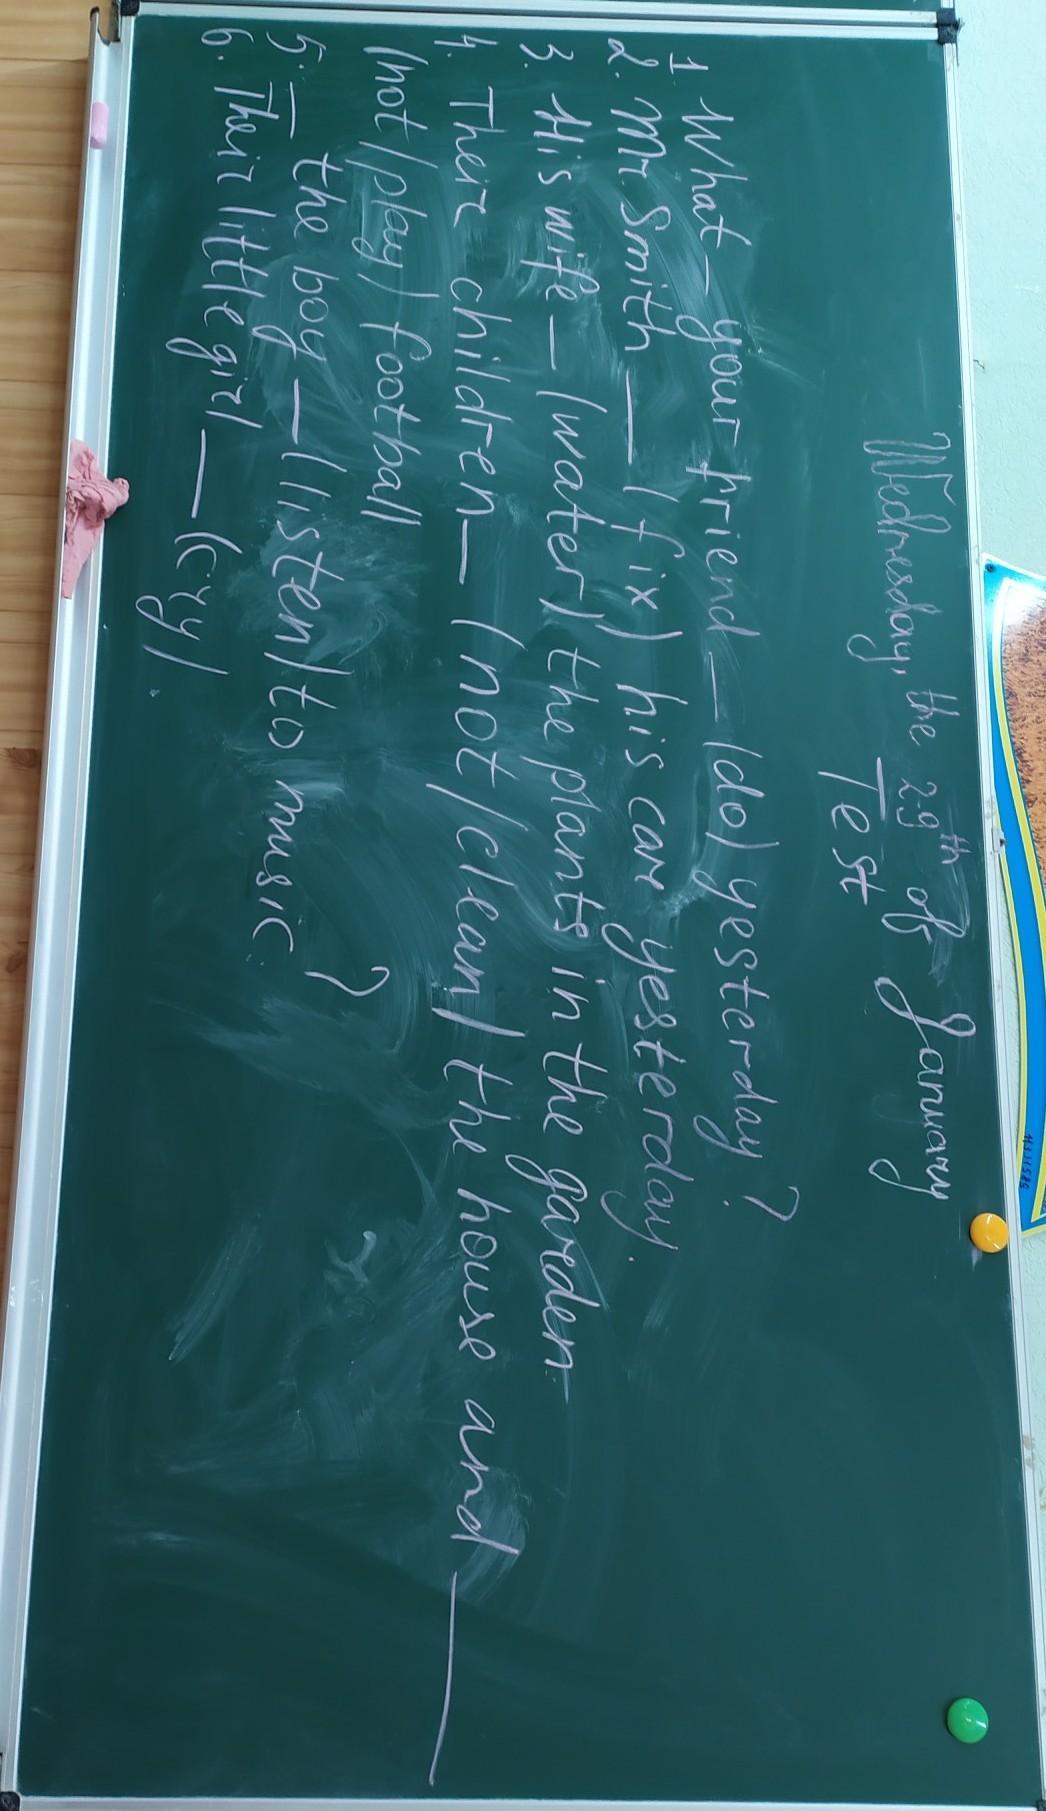 Wednesday, the 29th of January
Test
1. What _ your friend _ (do) yesterday?
2. Mr. Smith _ (fix) his car yesterday.
3. His wife _ (water) the plants in the garden.
4. Their children _ (not/clean) the house and _
(not/play) football
5. _ the boy _ (listen) to music?
6. Their little girl _ (cry)